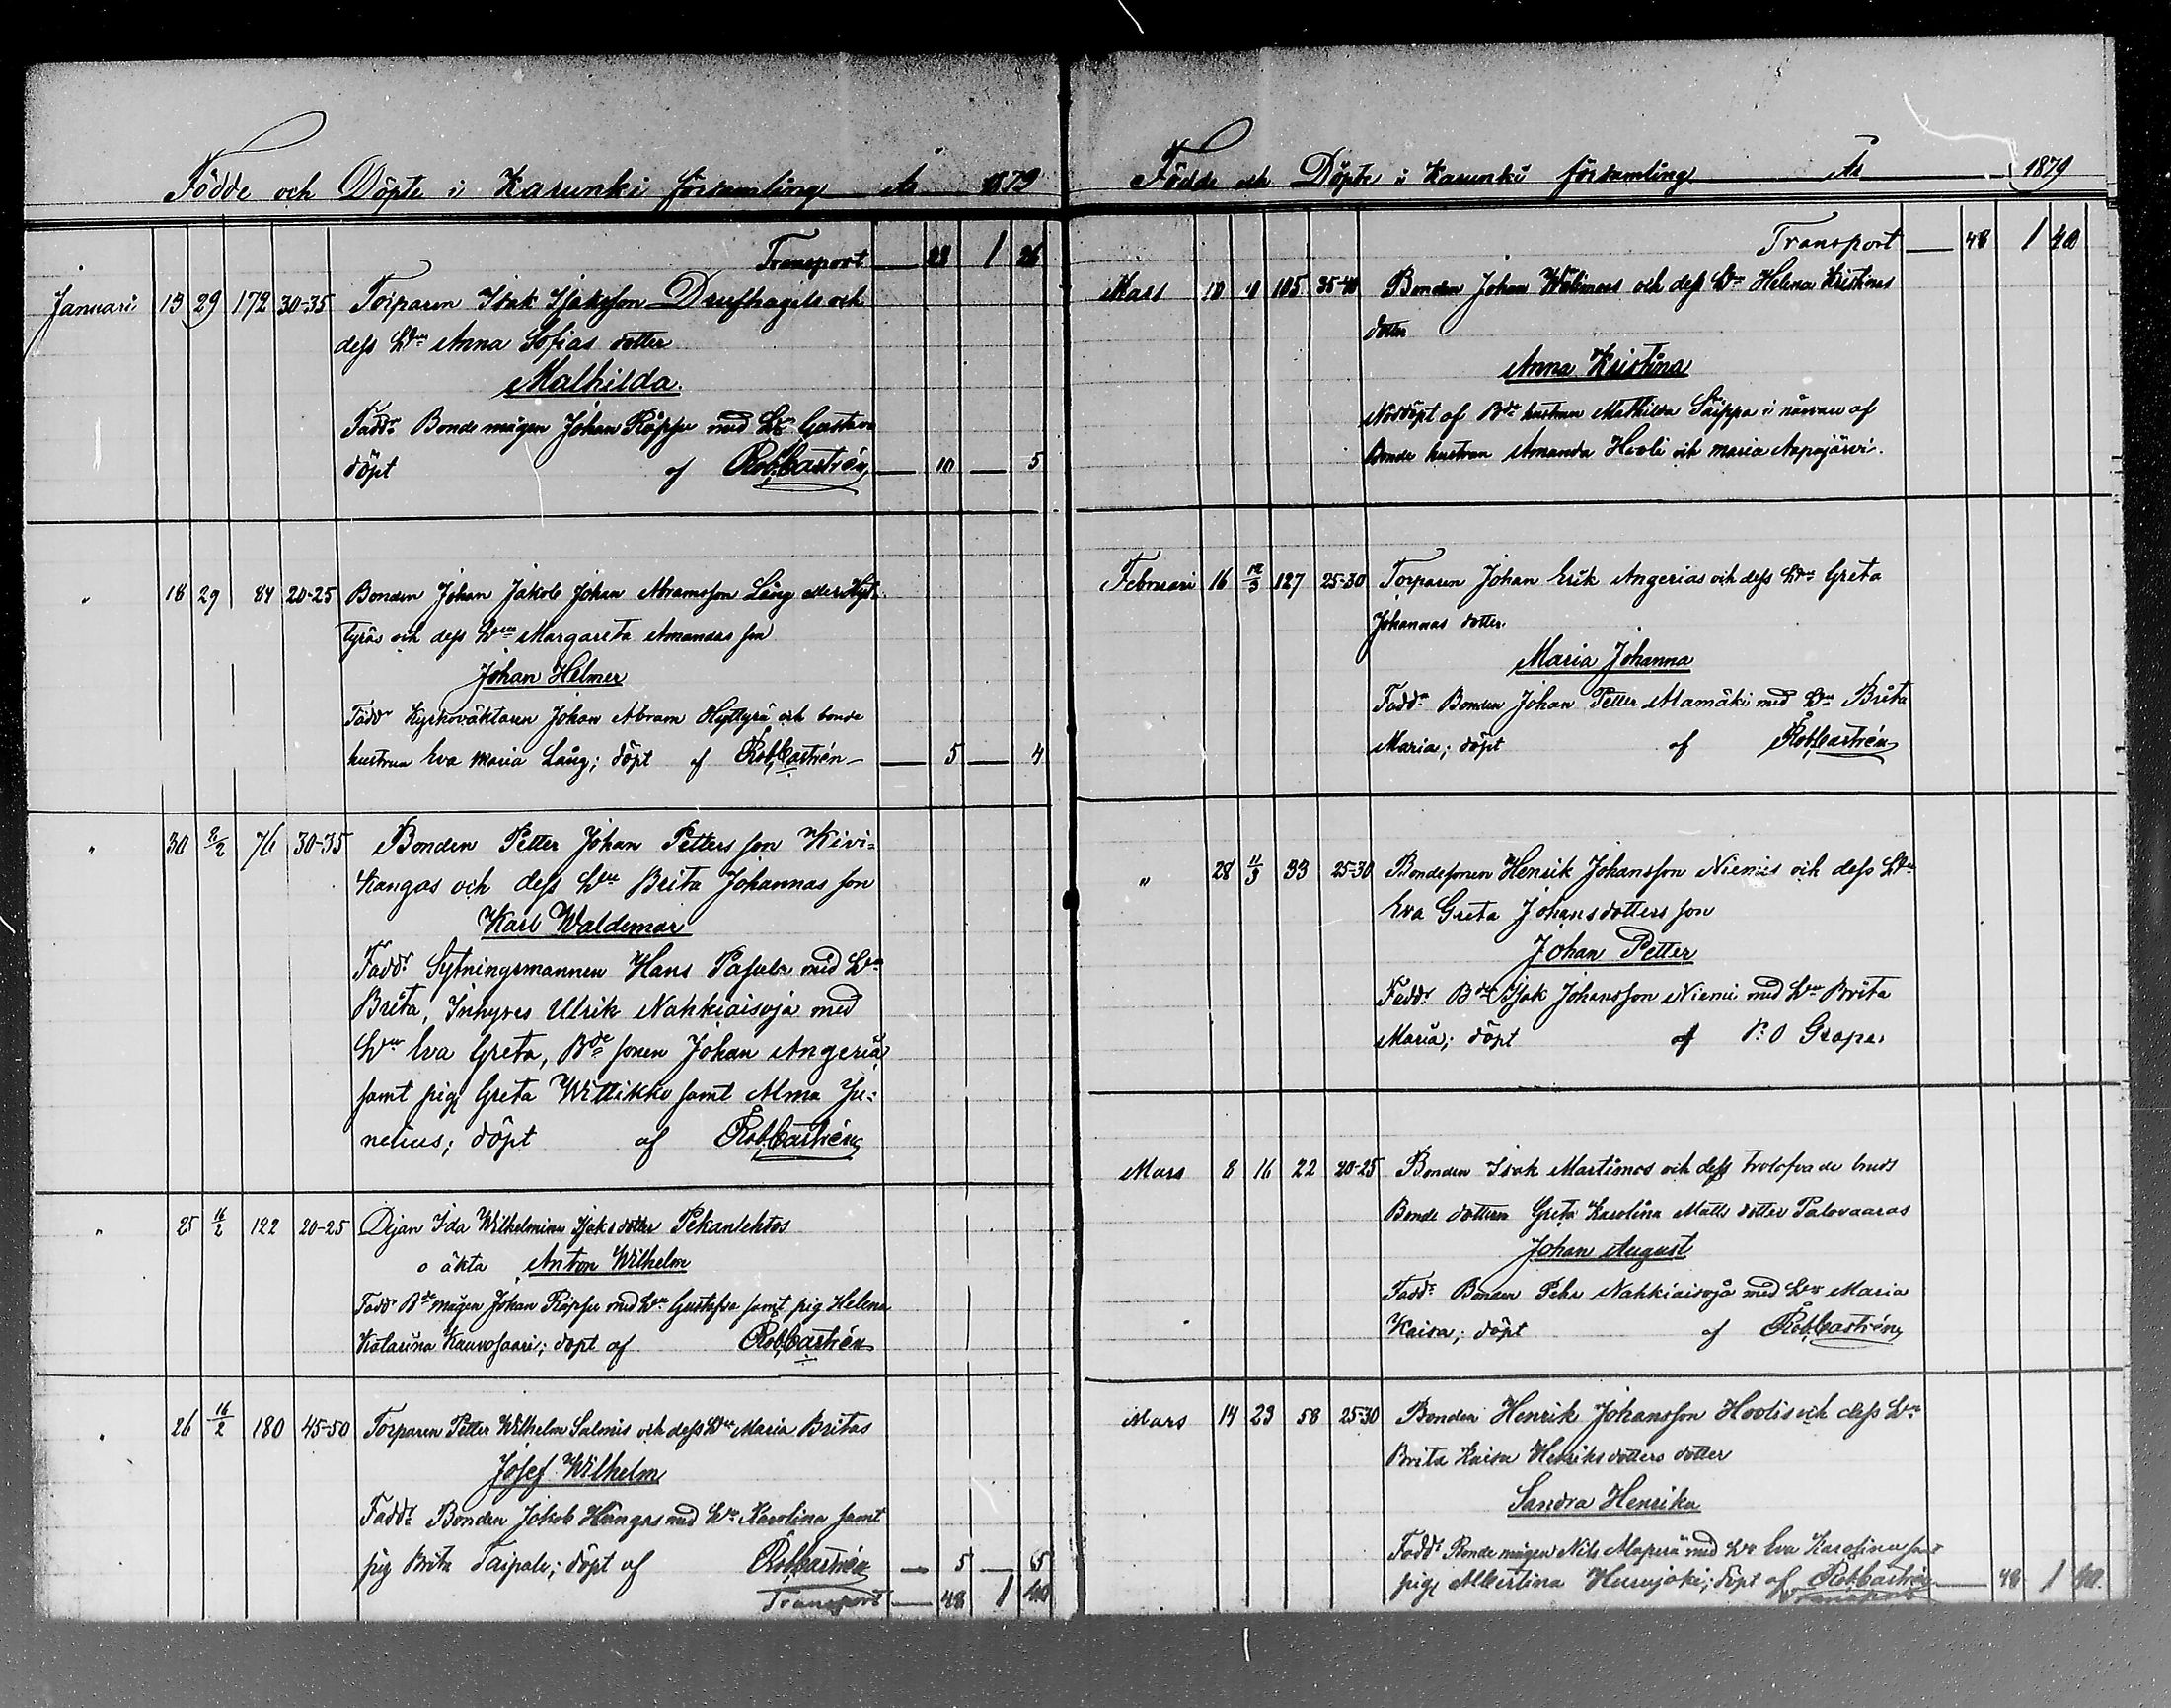 Födde och Döpte i Karunki församling År 1879
Transport — 28 1 26
Januari 13 29 172 30-35 Torparen Isak Isaksson och
dess Hru Anna Sofias dotter
Mathilda.
Faddr Bonde mågen Johan Röpße med Hu Gustava
döpt af Rob. Castrén — 10 — 5
" 18 29 84 20-25 Bonden Johan Jakob Johan Abramsson Lång eller Hyt-
tyräs och dess Hru Margareta Amandas son
Johan Helmer
Faddr Kyrkoväktaren Johan Abram Hyttyrä och bonde
hustrun Eva Maria Lång; döpt af Rob. Castrén — 5 — 4
" 30 2/2 76 30-35 Bonden Petter Johan Petters son Kivi-
kangas och dess Hru Brita Johannas son
Karl Waldemar
Faddr Sytningsmannen Hans med Hru
Brita, Inhyres Ulrik Nahkiaisoja med
Hru Eva Greta, Bde sonen Johan Angeriä
samt pig Greta Wittikko samt Alma Ju-
nelius; döpt af Rob. Castrén
" 25 16/2 122 20-25 Dejan Ida Wilhelmina Isaks dotter Pekanlehtos
o äkta Anton Wilhelm
Faddr Bde mågen Johan Röpße med Hru Gustafva samt pig Helena
Katarina Kauvosaari; döpt af Rob. Castrén
" 26 16/2 180 45-50 Torparen Petter Wilhelm Salmis och dess Hru Maria Britas
Josef Wilhelm
Faddr Bonden Jakob Hångas med Hru Karolina samt
pig Brita Taipale; döpt af Rob. Castrén — 5 — 5
Transport — 48 1 40
Födde och Döpte i Karunki församling År 1879
Transport — 48 1 40
Mars 10 10 105 35-40 Bonden Johan Wälimaas och dess Hru Helena Kristinas
dotter
Anna Kristina
Nöddöpt af Bde hustrun Mathilda Säippa i närvaro af
Bonde hustrun Amanda Hooli och Maria Aapajärvi.
Februari 16 12/3 127 25-30 Torparen Johan Erik Angerias och dess Hru Greta
Johannas dotter.
Maria Johanna
Faddr Bonden Johan Petter Alamäki med Hru Brita
Maria; döpt af Rob. Castrén
" 28 11/3 33 25-30 Bondesonen Henrik Johansson Niemis och dess Hru
Eva Greta Johansdotters son
Johan Petter
Faddr Bde Isak Johansson Niemi med Hru Brita
Maria; döpt af P. O Grape.
Mars 8 16 22 20-25 Bonden Isak Martimos och dess trolofvade brud
Bonde dottern Greta Karolina Matts dotter Palovaaras
Johan August
Faddr Bonden Pehr Nahkiaisoja med Hru Maria
Kaisa; döpt af Rob. Castrén
Mars 14 23 58 25-30 Bonden Henrik Johansson Hoolis och dess Hru
Brita Kaisa Henriksdotters dotter
Sandra Henrika
Faddr Bonde mågen Nils Alaperä med Hru Eva Karolina samt
pig Albertina; döpt af Rob. Castrén — 48 1 40
Transport